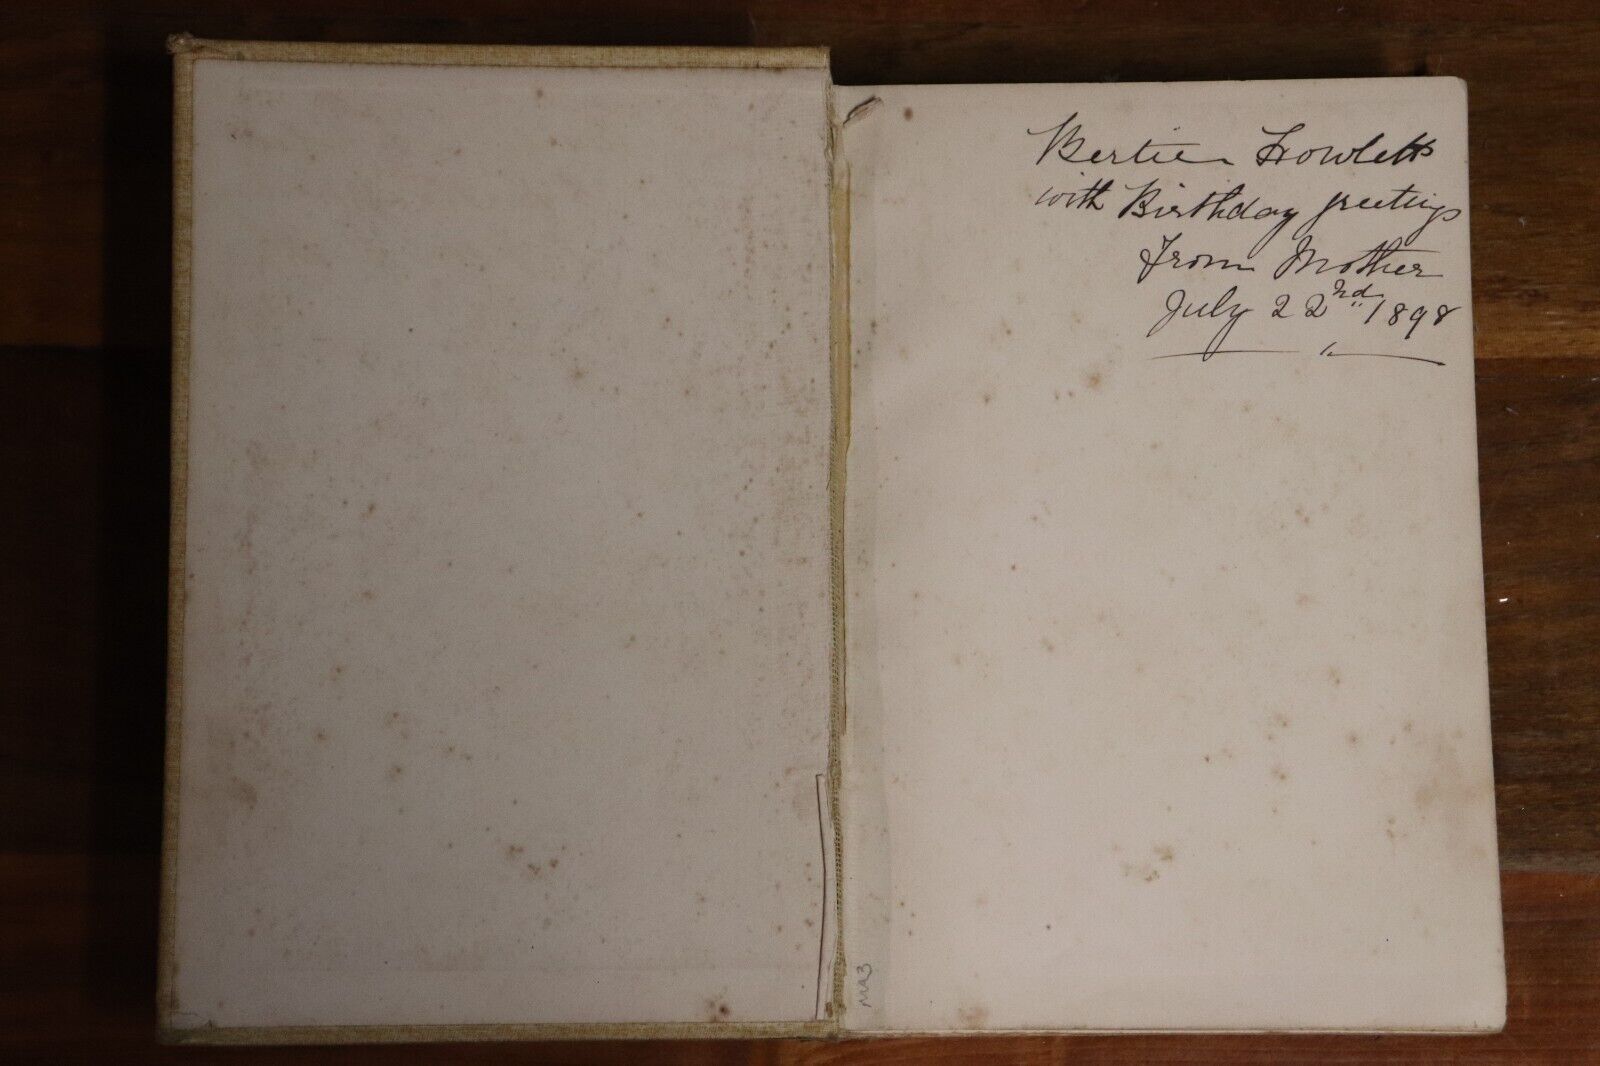 Bertie Howlett
with Birthday greetings
From Mother
July 22nd 1898
MA3